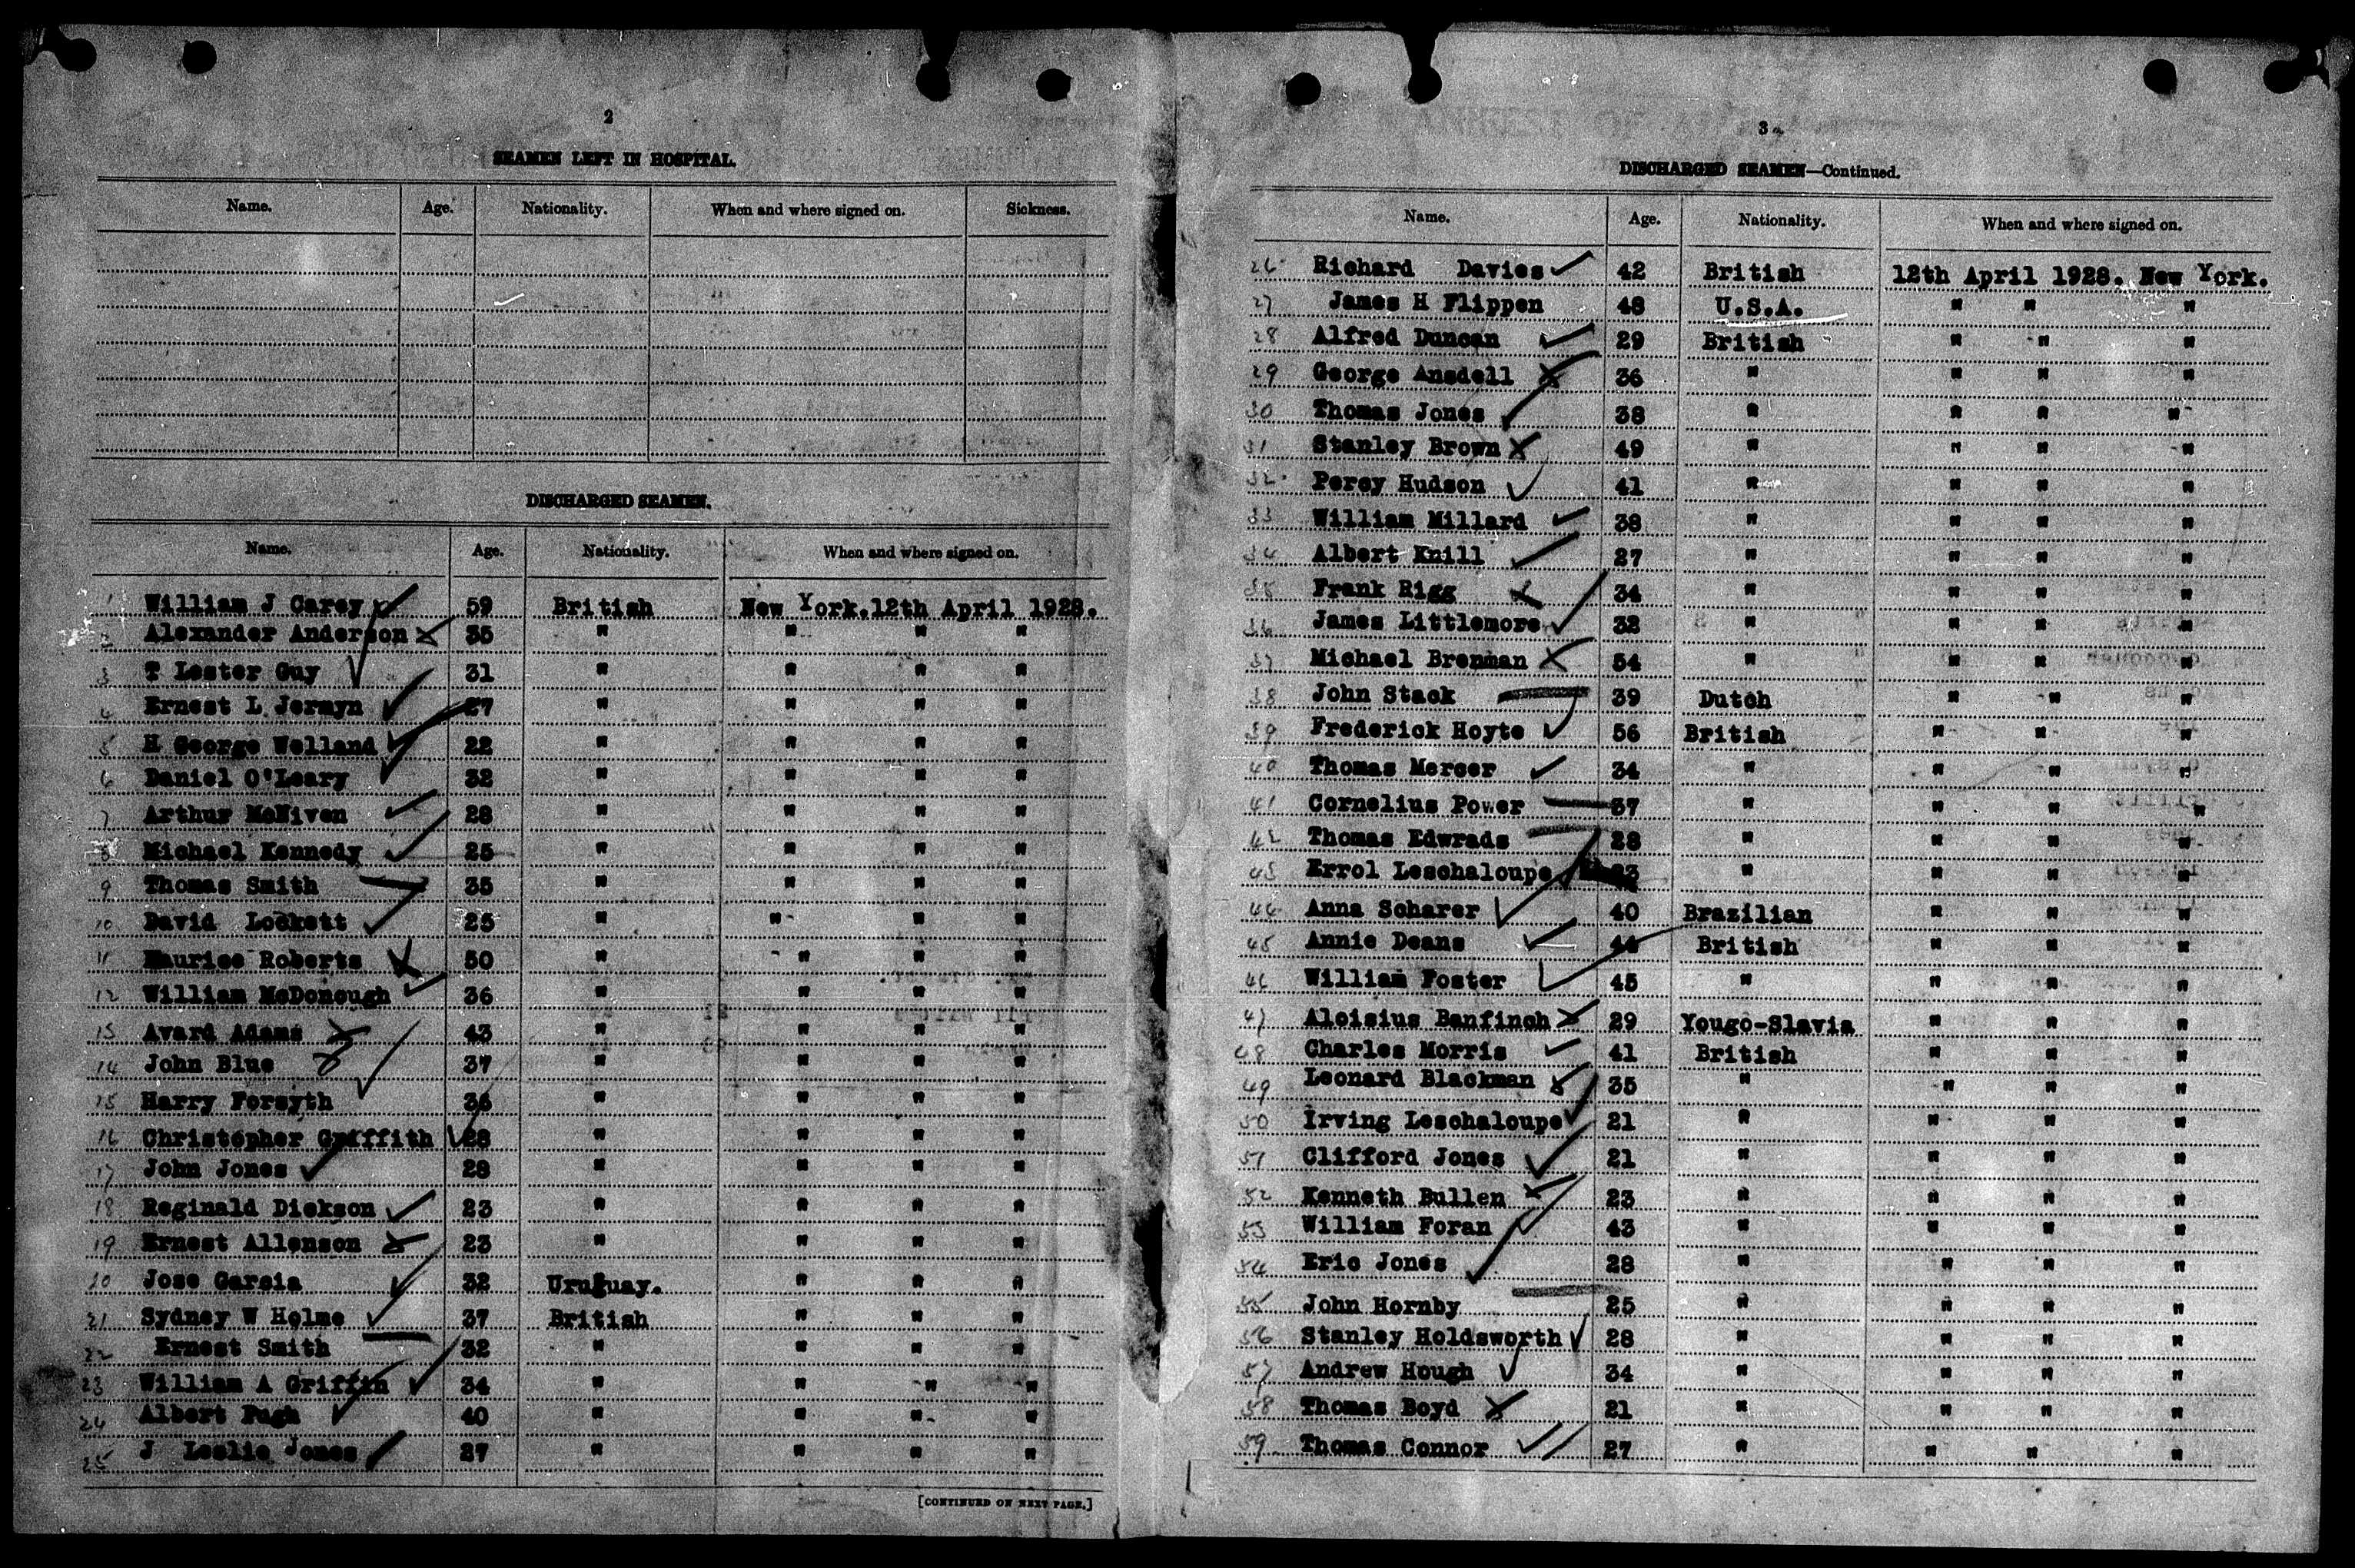 2
SEAMEN LEFT IN HOSPITAL.
Name. Age. Nationality. When and where signed on. Sickness.
DISCHARGED SEAMEN.
Name. Age. Nationality. When and where signed on.
1 William J Carey 59 British New York.12th April 1928.
2 Alexander Anderson 35 " " " "
3 T Lester Guy 31 " " " "
4 Ernest L Jermyn 27 " " " "
5 H George Welland 22 " " " "
6 Daniel O'Leary 32 " " " "
7 Arthur McNiven 28 " " " "
8 Michael Kennedy 25 " " " "
9 Thomas Smith 35 " " " "
10 David Lockett 25 " " " "
11 Maurice Roberts 50 " " " "
12 William McDonough 36 " " " "
13 Avard Adams 43 " " " "
14 John Blue 37 " " " "
15 Harry Forsyth 36 " " " "
16 Christopher Griffith 28 " " " "
17 John Jones 28 " " " "
18 Reginald Dickson 23 " " " "
19 Ernest Allenson 23 " " " "
20 Jose Garsia 32 Uruguay. " " "
21 Sydney W Holme 37 British " " "
22 Ernest Smith 32 " " " "
23 William A Griffin 34 " " " "
24 Albert Pugh 40 " " " "
25 J Leslie Jones 27 " " " "
[CONTINUED ON NEXT PAGE.]
3
DISCHARGED SEAMEN—Continued.
Name. Age. Nationality. When and where signed on.
26 Richard Davies 42 British 12th April 1928. New York.
27 James H Flippen 48 U.S.A. " " "
28 Alfred Duncan 29 British " " "
29 George Ansdell 36 " " " "
30 Thomas Jones 38 " " " "
31 Stanley Brown 49 " " " "
32 Percy Hudson 41 " " " "
33 William Millard 38 " " " "
34 Albert Knill 27 " " " "
35 Frank Rigg 34 " " " "
36 James Littlemore 32 " " " "
37 Michael Brennan 54 " " " "
38 John Stack 39 Dutch " " "
39 Frederick Hoyte 56 British " " "
40 Thomas Mercer 34 " " " "
41 Cornelius Power 37 " " " "
42 Thomas Edwrads 28 " " " "
43 Errol Leschaloupe 23 " " " "
44 Anna Scharer 40 Brazilian " " "
45 Annie Deans 44 British " " "
46 William Foster 45 " " " "
47 Aloisius Banfinch 29 Yougo-Slavia " " "
48 Charles Morris 41 British " " "
49 Leonard Blackman 35 " " " "
50 Irving Leschaloupe 21 " " " "
51 Clifford Jones 21 " " " "
52 Kenneth Bullen 23 " " " "
53 William Foran 43 " " " "
54 Eric Jones 28 " " " "
55 John Hornby 25 " " " "
56 Stanley Holdsworth 28 " " " "
57 Andrew Hough 34 " " " "
58 Thomas Boyd 21 " " " "
59 Thomas Connor 27 " " " "